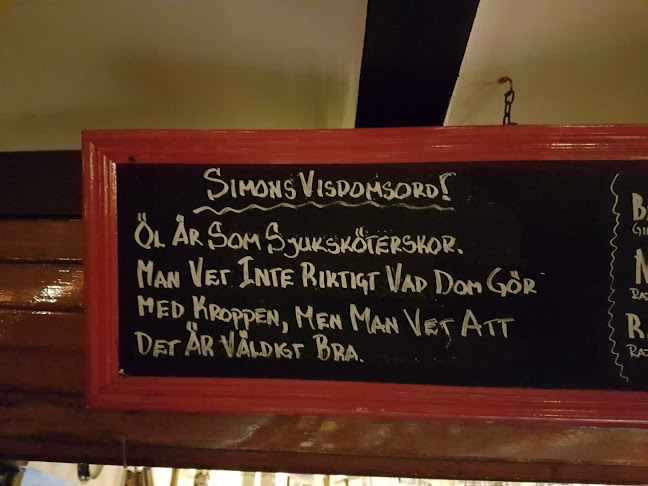 SIMONS VISDOMSORD!
ÖL ÄR SOM SJUKSKÖTERSKOR.
MAN VET INTE RIKTIGT VAD DOM GÖR
MED KROPPEN, MEN MAN VET ATT
DET ÄR VÄLDIGT BRA.